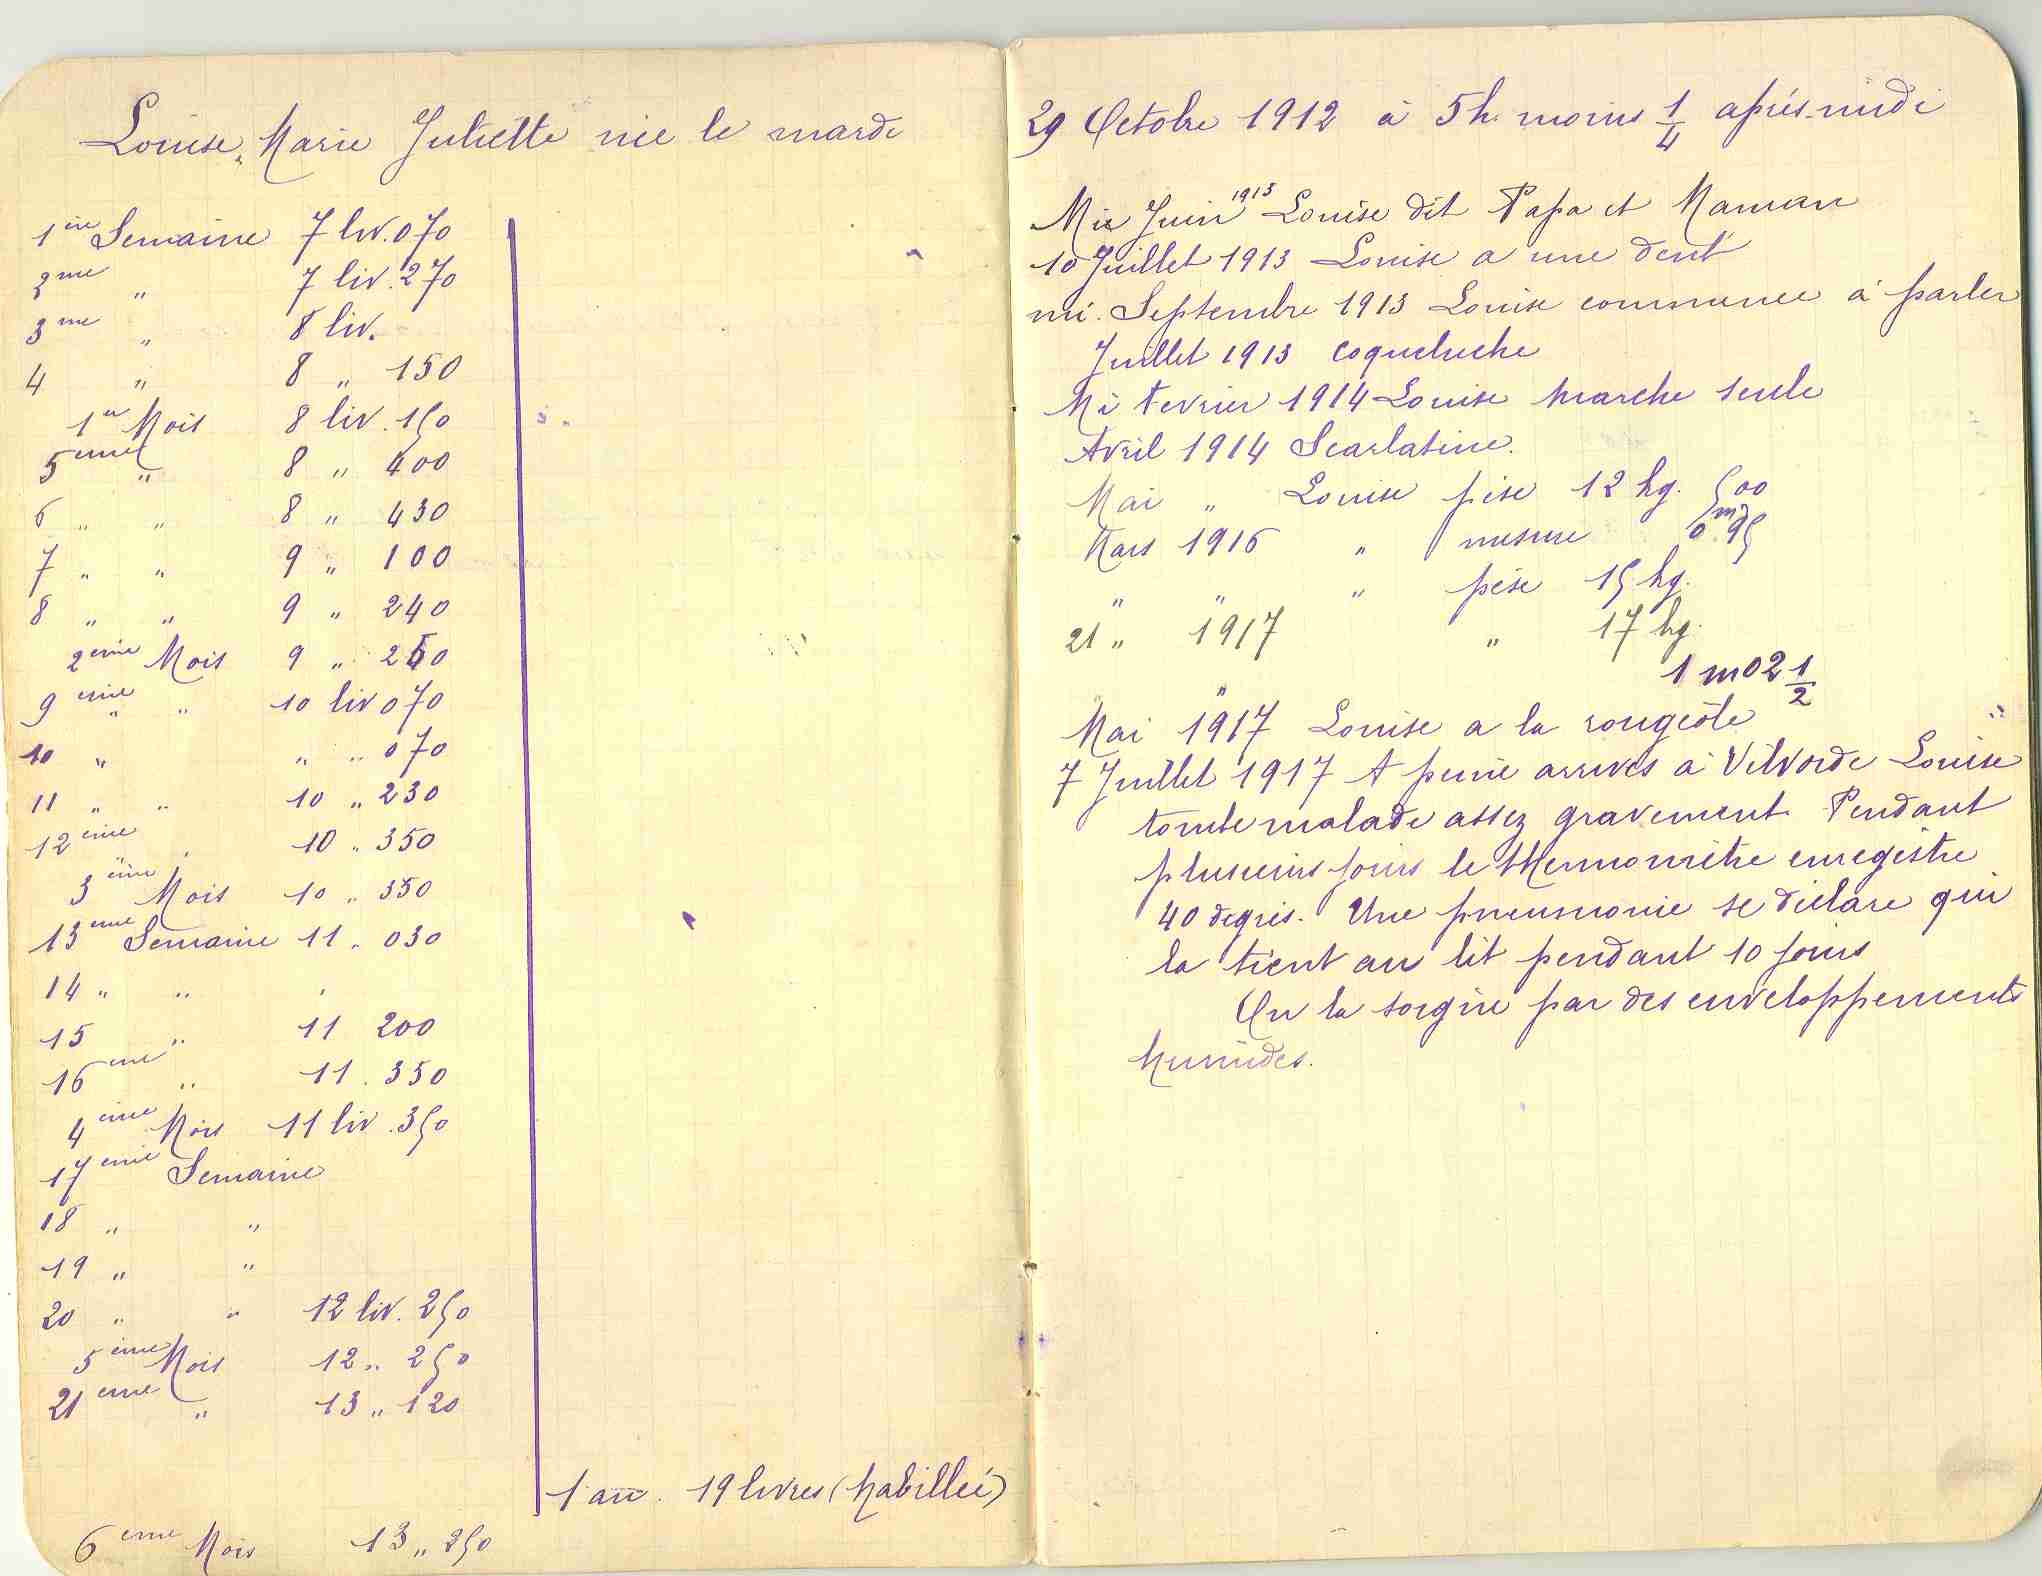 Louise, Marie Juliette née le mardi
1ère Semaine 7 liv. 070
2me " 7 liv. 270
3me " 8 liv.
4 " 8 " 150
1er Mois 8 liv. 150
5eme " 8 " 400
6 " " 8 " 430
7 " " 9 " 100
8 " " 9 " 240
2eme Mois 9 " 250
9eme " " 10 liv 070
10 " " " 070
11 " " 10 " 230
12eme " 10 " 350
3ème Mois 10 " 350
13eme Semaine 11 " 030
14 " " "
15 " 11 200
16eme " 11 . 350
4eme Mois 11 liv . 350
17eme Semaine
18 " "
19 " "
20 " " 12 liv. 250
5ème Mois 12 " 250
21eme " 13 " 120
1 an . 19 livres (habillée)
6eme Mois 13 " 250
29 Octobre 1912 à 5 h. moins 1/4 après-midi
Mi Juin 1913 Louise dit Papa et Maman
10 Juillet 1913 Louise a une dent
mi. Septembre 1913 Louise commence à parler
Juillet 1913 coqueluche
Mi Fevrier 1914 Louise marche seule
Avril 1914 Scarlatine.
Mai " Louise pèse 12 kg. 500
Mars 1916 " mesure 0m,95
" " " pèse 15 kg.
21 " 1917 " 17 kg.
" 1 m 02 1/2
Mai 1917 Louise a la rougeole
7 Juillet 1917 A peine arrivés à Vilvorde Louise
tombe malade assez gravement. Pendant
plusieurs jours le thermomètre enregistre
40 degrés. Une pneumonie se déclare qui
la tient au lit pendant 10 jours
On la soigne par des enveloppements
humides.